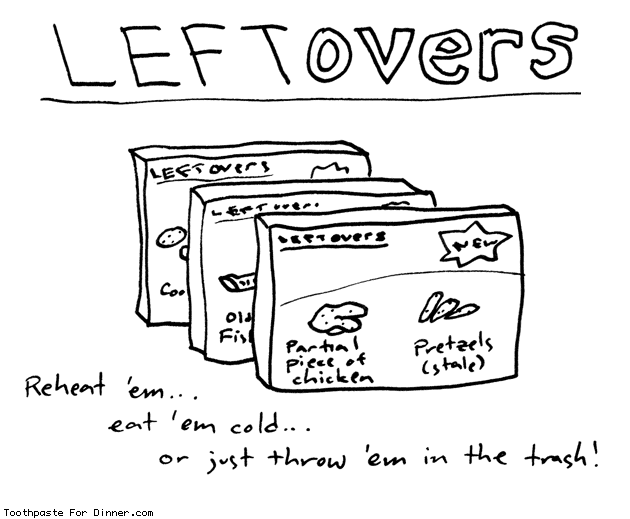 LEFTovers
LEFTovers
LEFTover
LEFTovers
NEW
Coo
Old
Fis
Partial
piece of
chicken
Pretzels
(stale)
Reheat 'em...
eat 'em cold...
or just throw 'em in the trash!
Toothpaste For Dinner.com